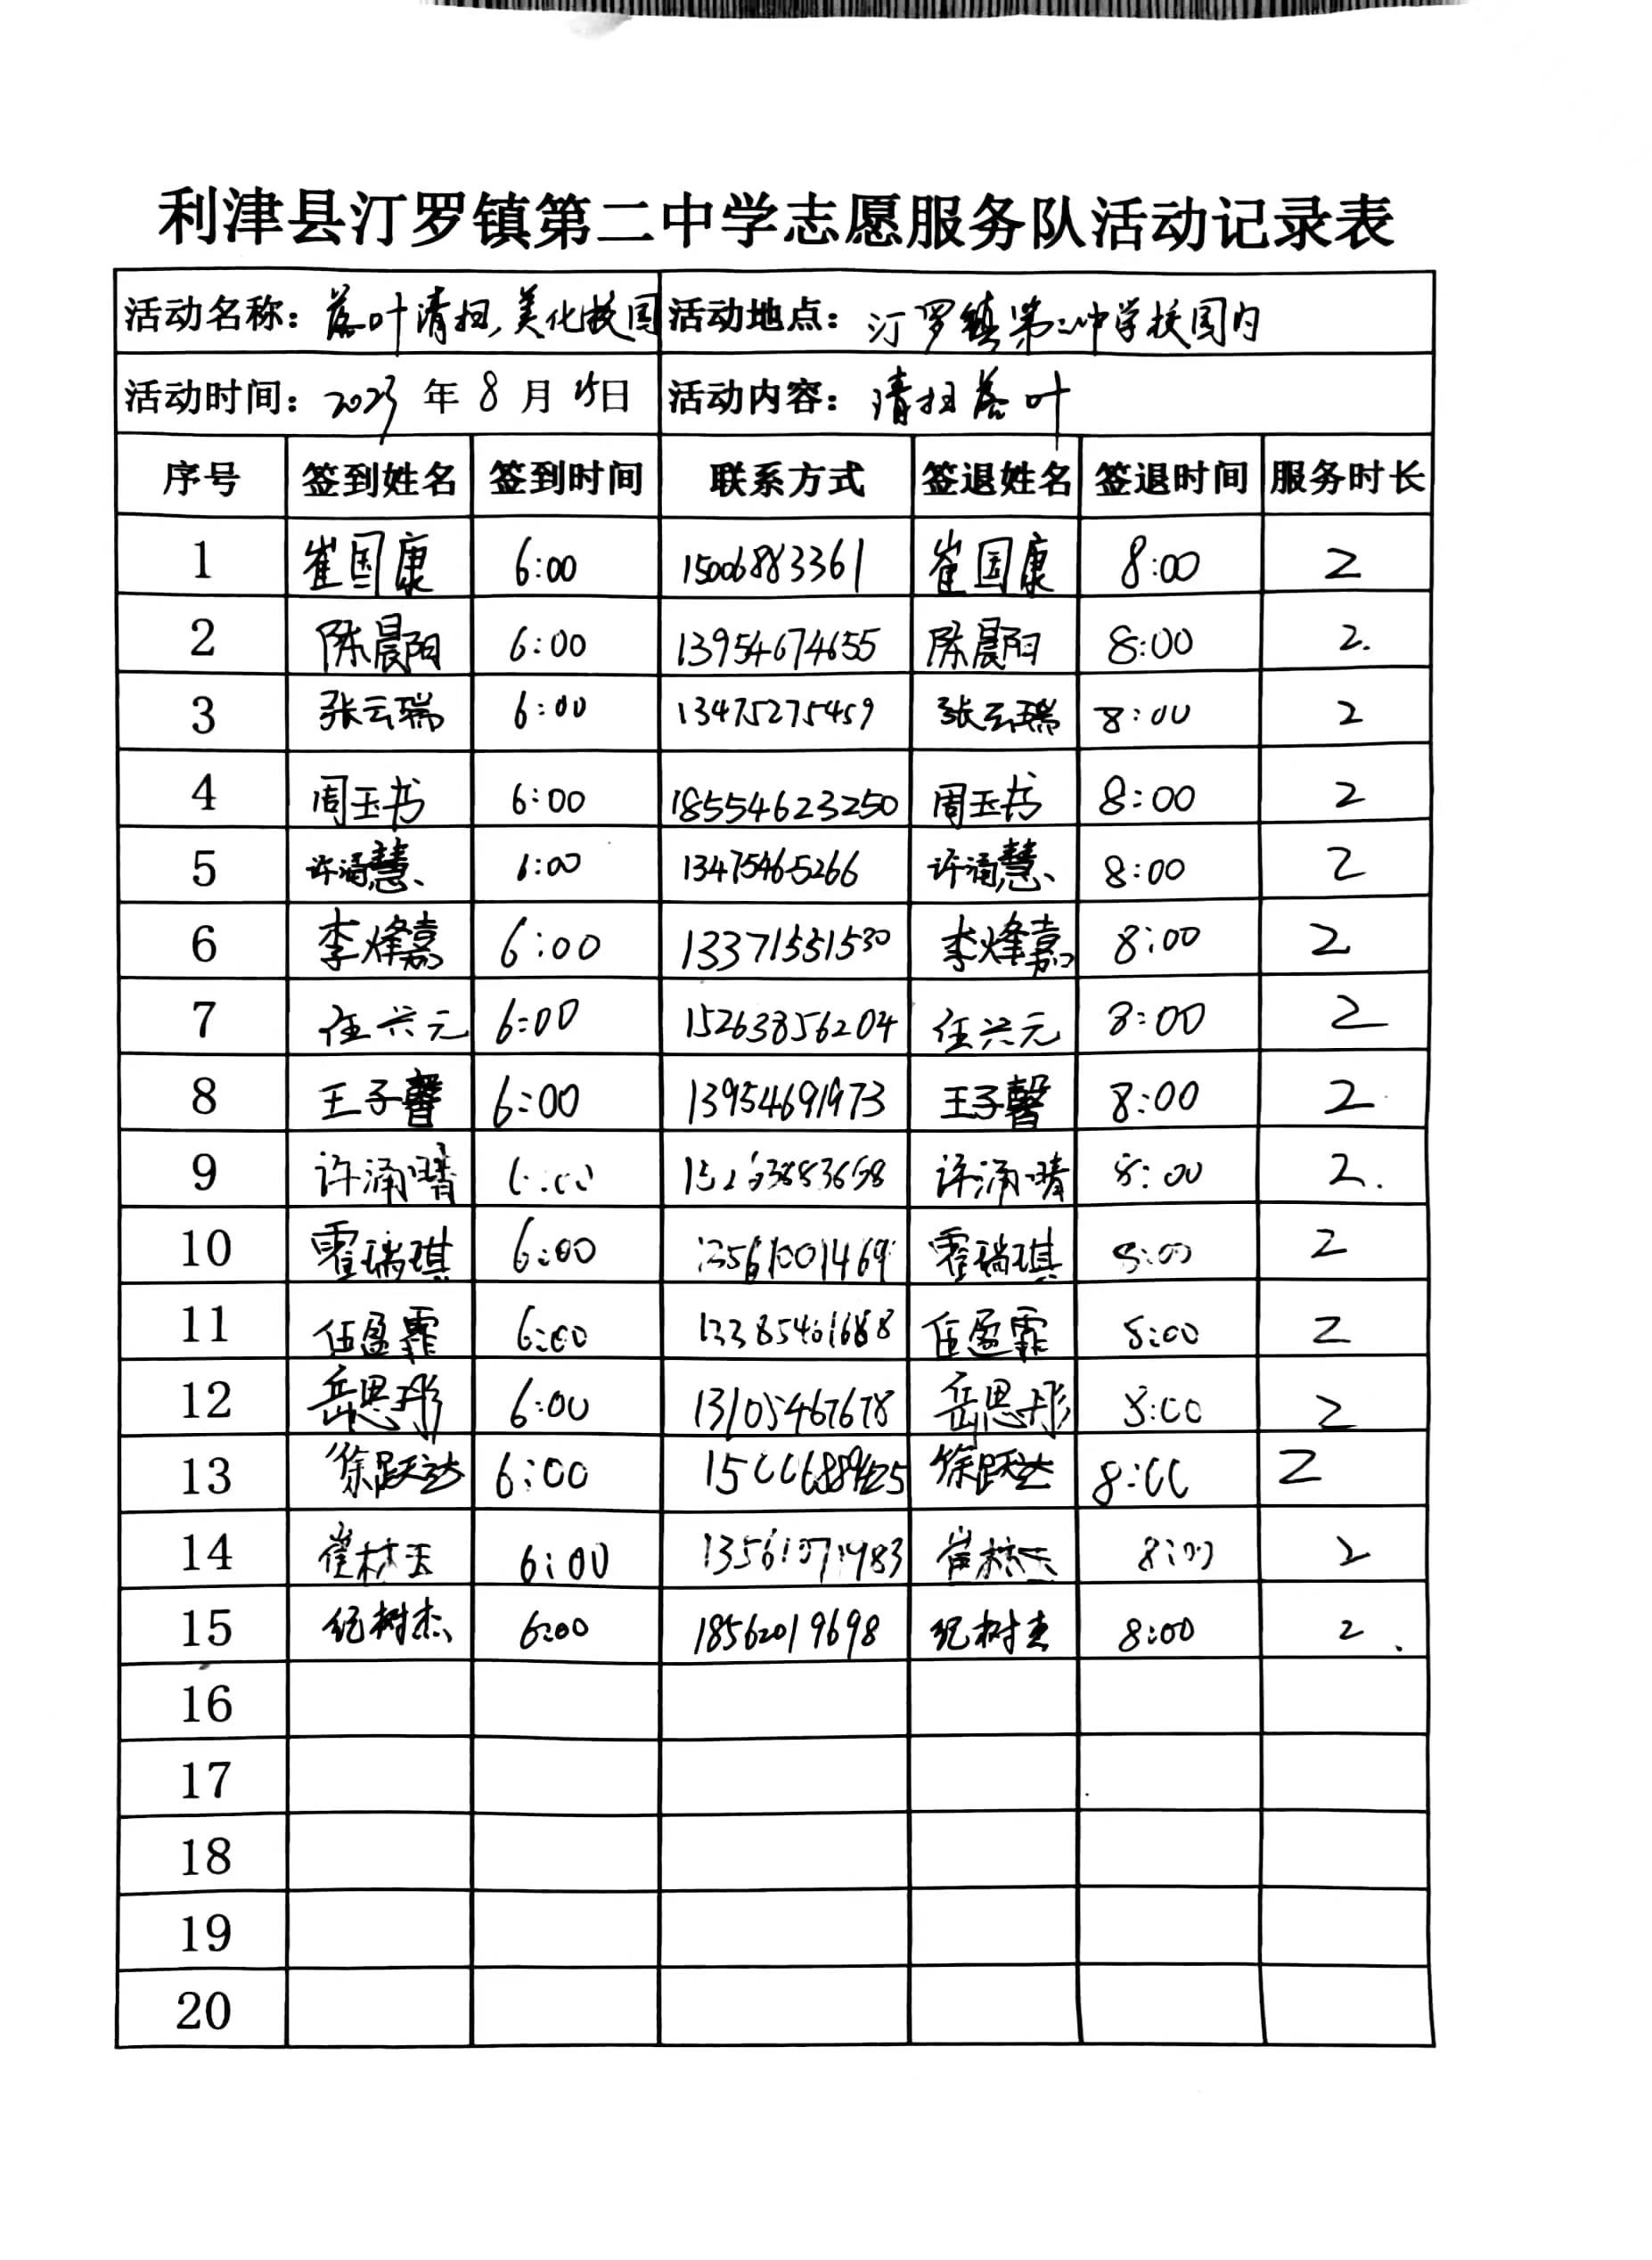 利津县汀罗镇第二中学志愿服务队活动记录表
活动名称：落叶清扫,美化校园 活动地点：汀罗镇第二中学校园内
活动时间：2023年8月15日 活动内容：清扫落叶
序号 签到姓名 签到时间 联系方式 签退姓名 签退时间 服务时长
1 崔国康 6:00 15006883361 崔国康 8:00 2
2 陈晨阳 6:00 13954674655 陈晨阳 8:00 2.
3 张云瑞 6:00 13475275459 张云瑞 8:00 2
4 周玉书 6:00 18554623250 周玉书 8:00 2
5 许涌慧 6:00 13475465266 许涌慧 8:00 2
6 李烽嘉 6:00 13371551530 李烽嘉 8:00 2
7 任兴元 6:00 15263856204 任兴元 8:00 2
8 王子馨 6:00 13954691973 王子馨 8:00 2
9 许涌晴 6:00 许涌晴 8:00 2.
10 霍瑞琪 6:00 霍瑞琪 8:00 2
11 任盈霏 6:00 任盈霏 8:00 2
12 岳思彤 6:00 13105467678 岳思彤 8:00 2
13 徐跃达 6:00 徐跃达 8:00 2
14 崔林玉 6:00 崔林玉 8:00 2
15 纪树杰 6:00 18562019698 纪树杰 8:00 2
16
17
18
19
20